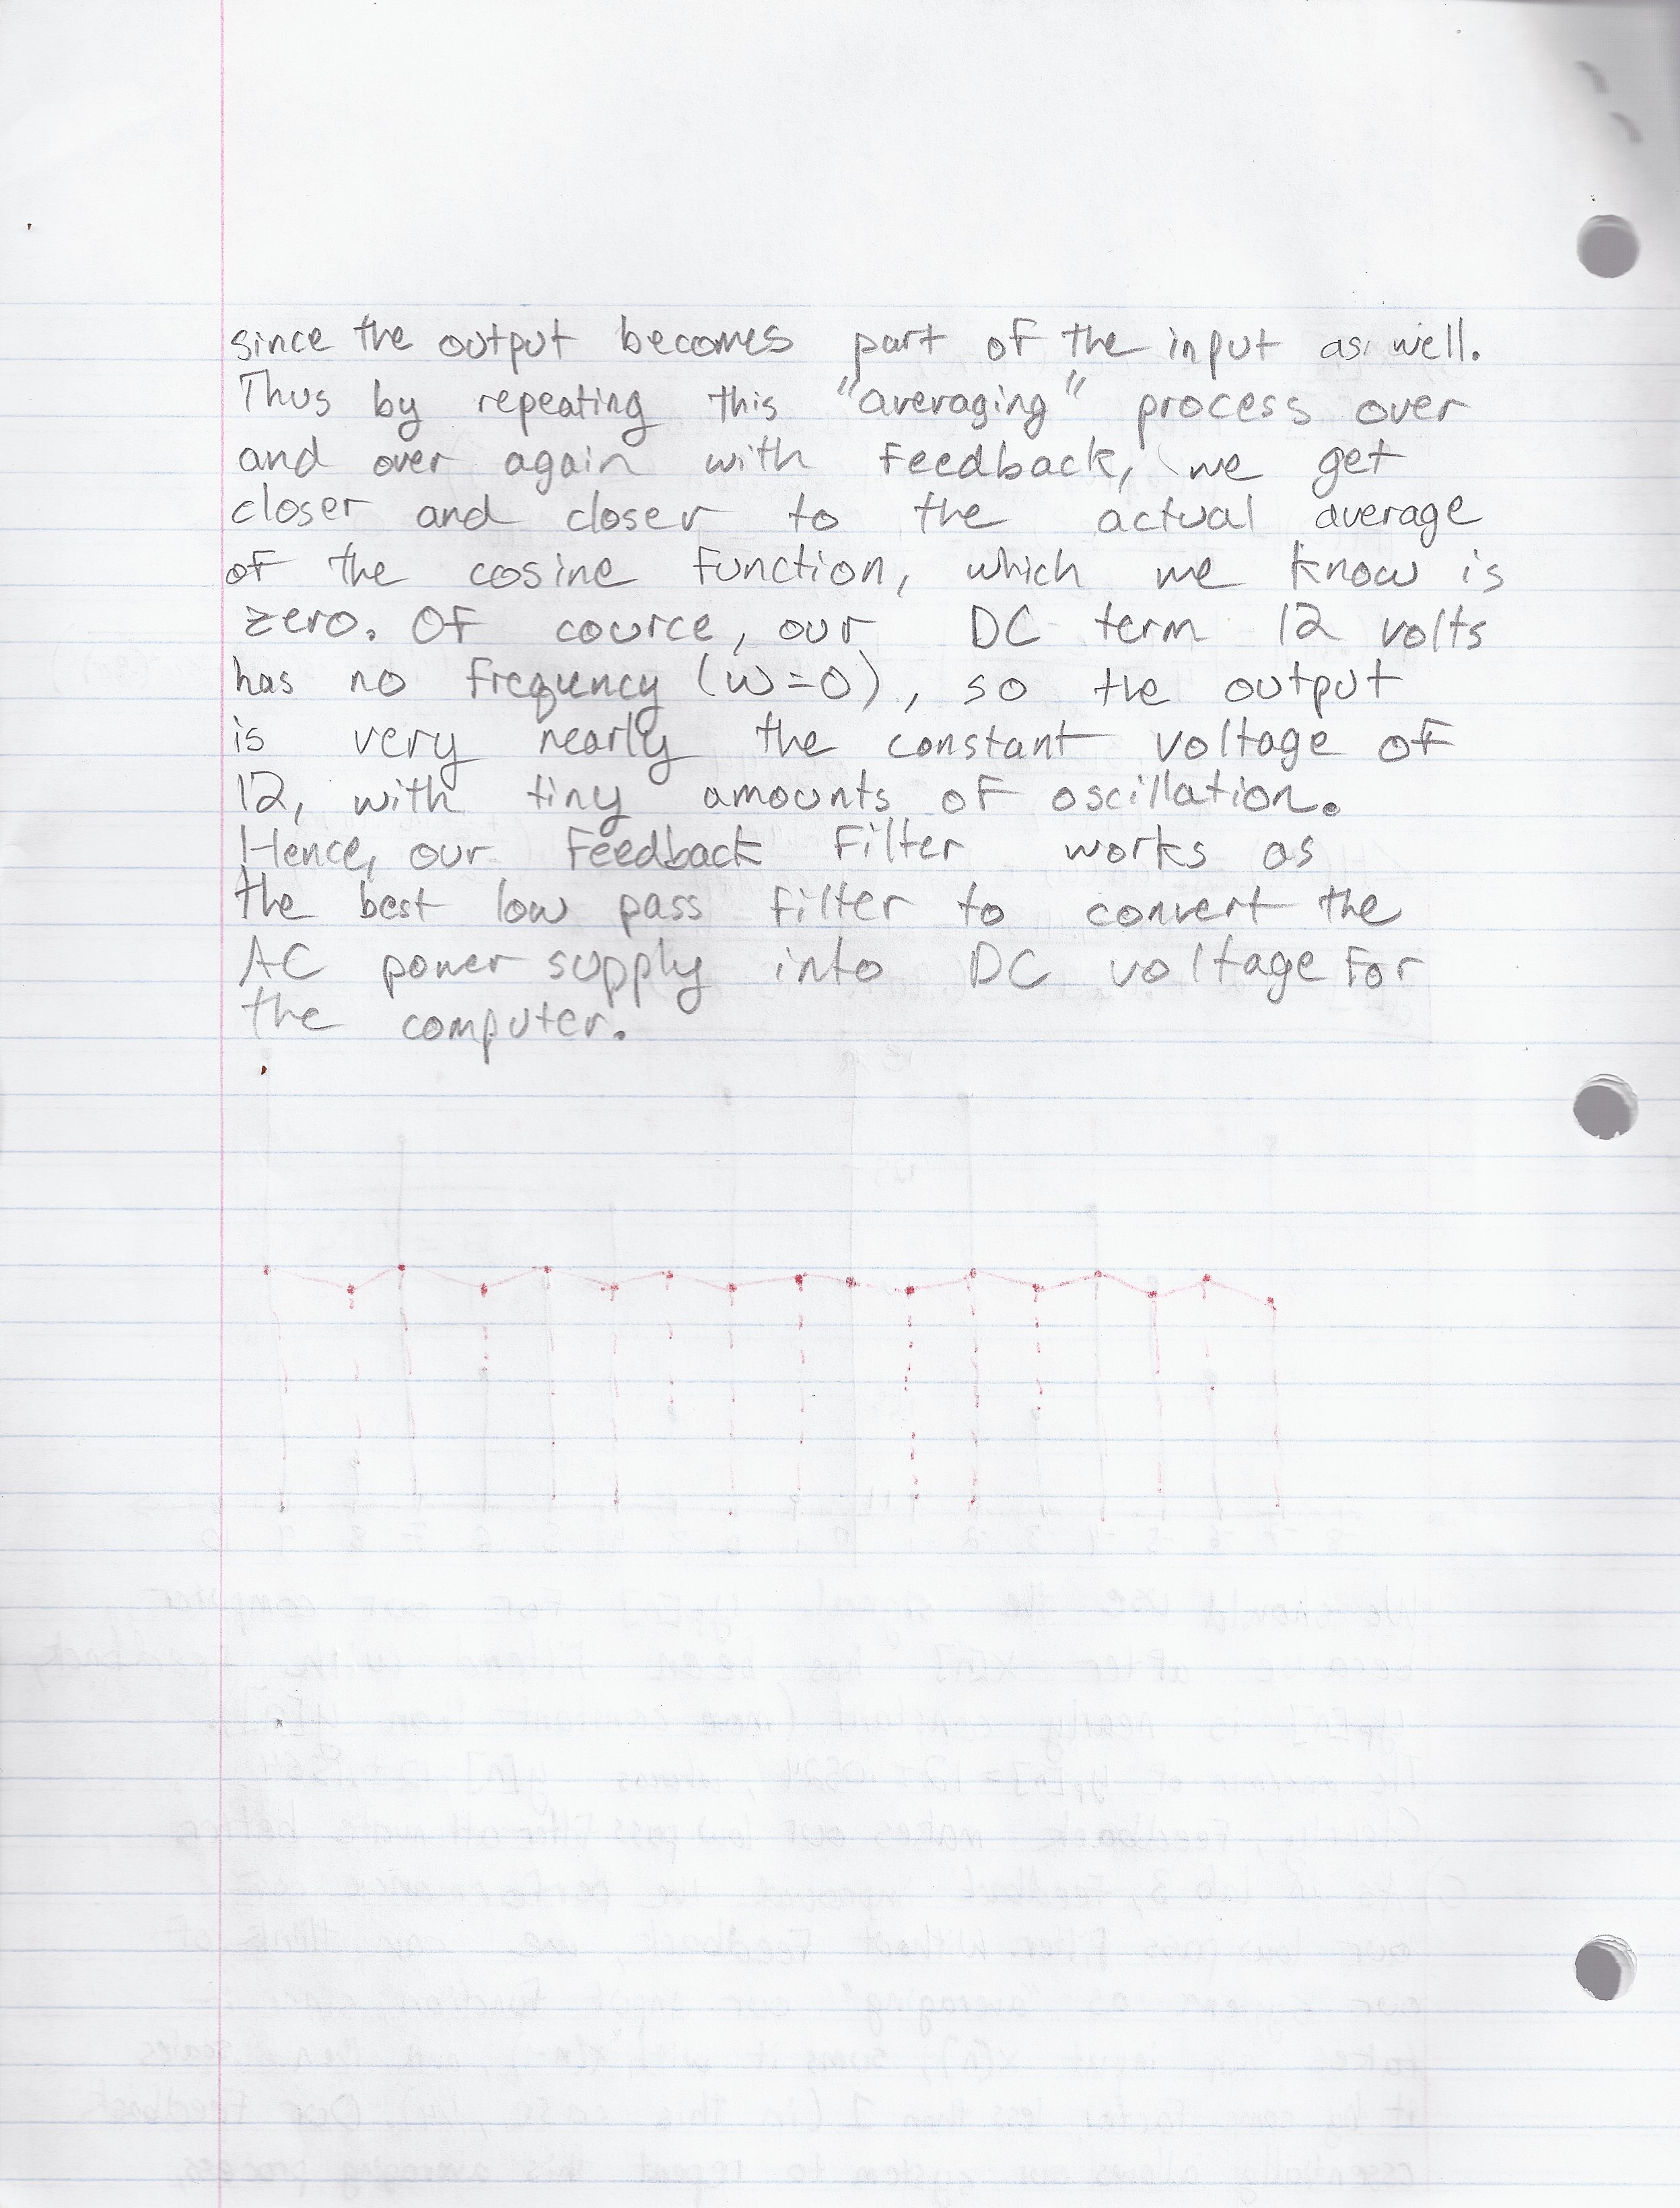 since the output becomes part of the input as well.
Thus by repeating this "averaging" process over
and over again with feedback, we get
closer and closer to the actual average
of the cosine function, which we know is
zero. Of cource, our DC term 12 volts
has no frequency (ω=0), so the output
is very nearly the constant voltage of
12, with tiny amounts of oscillation.
Hence, our feedback filter works as
the best low pass filter to convert the
AC power supply into DC voltage for
the computer.